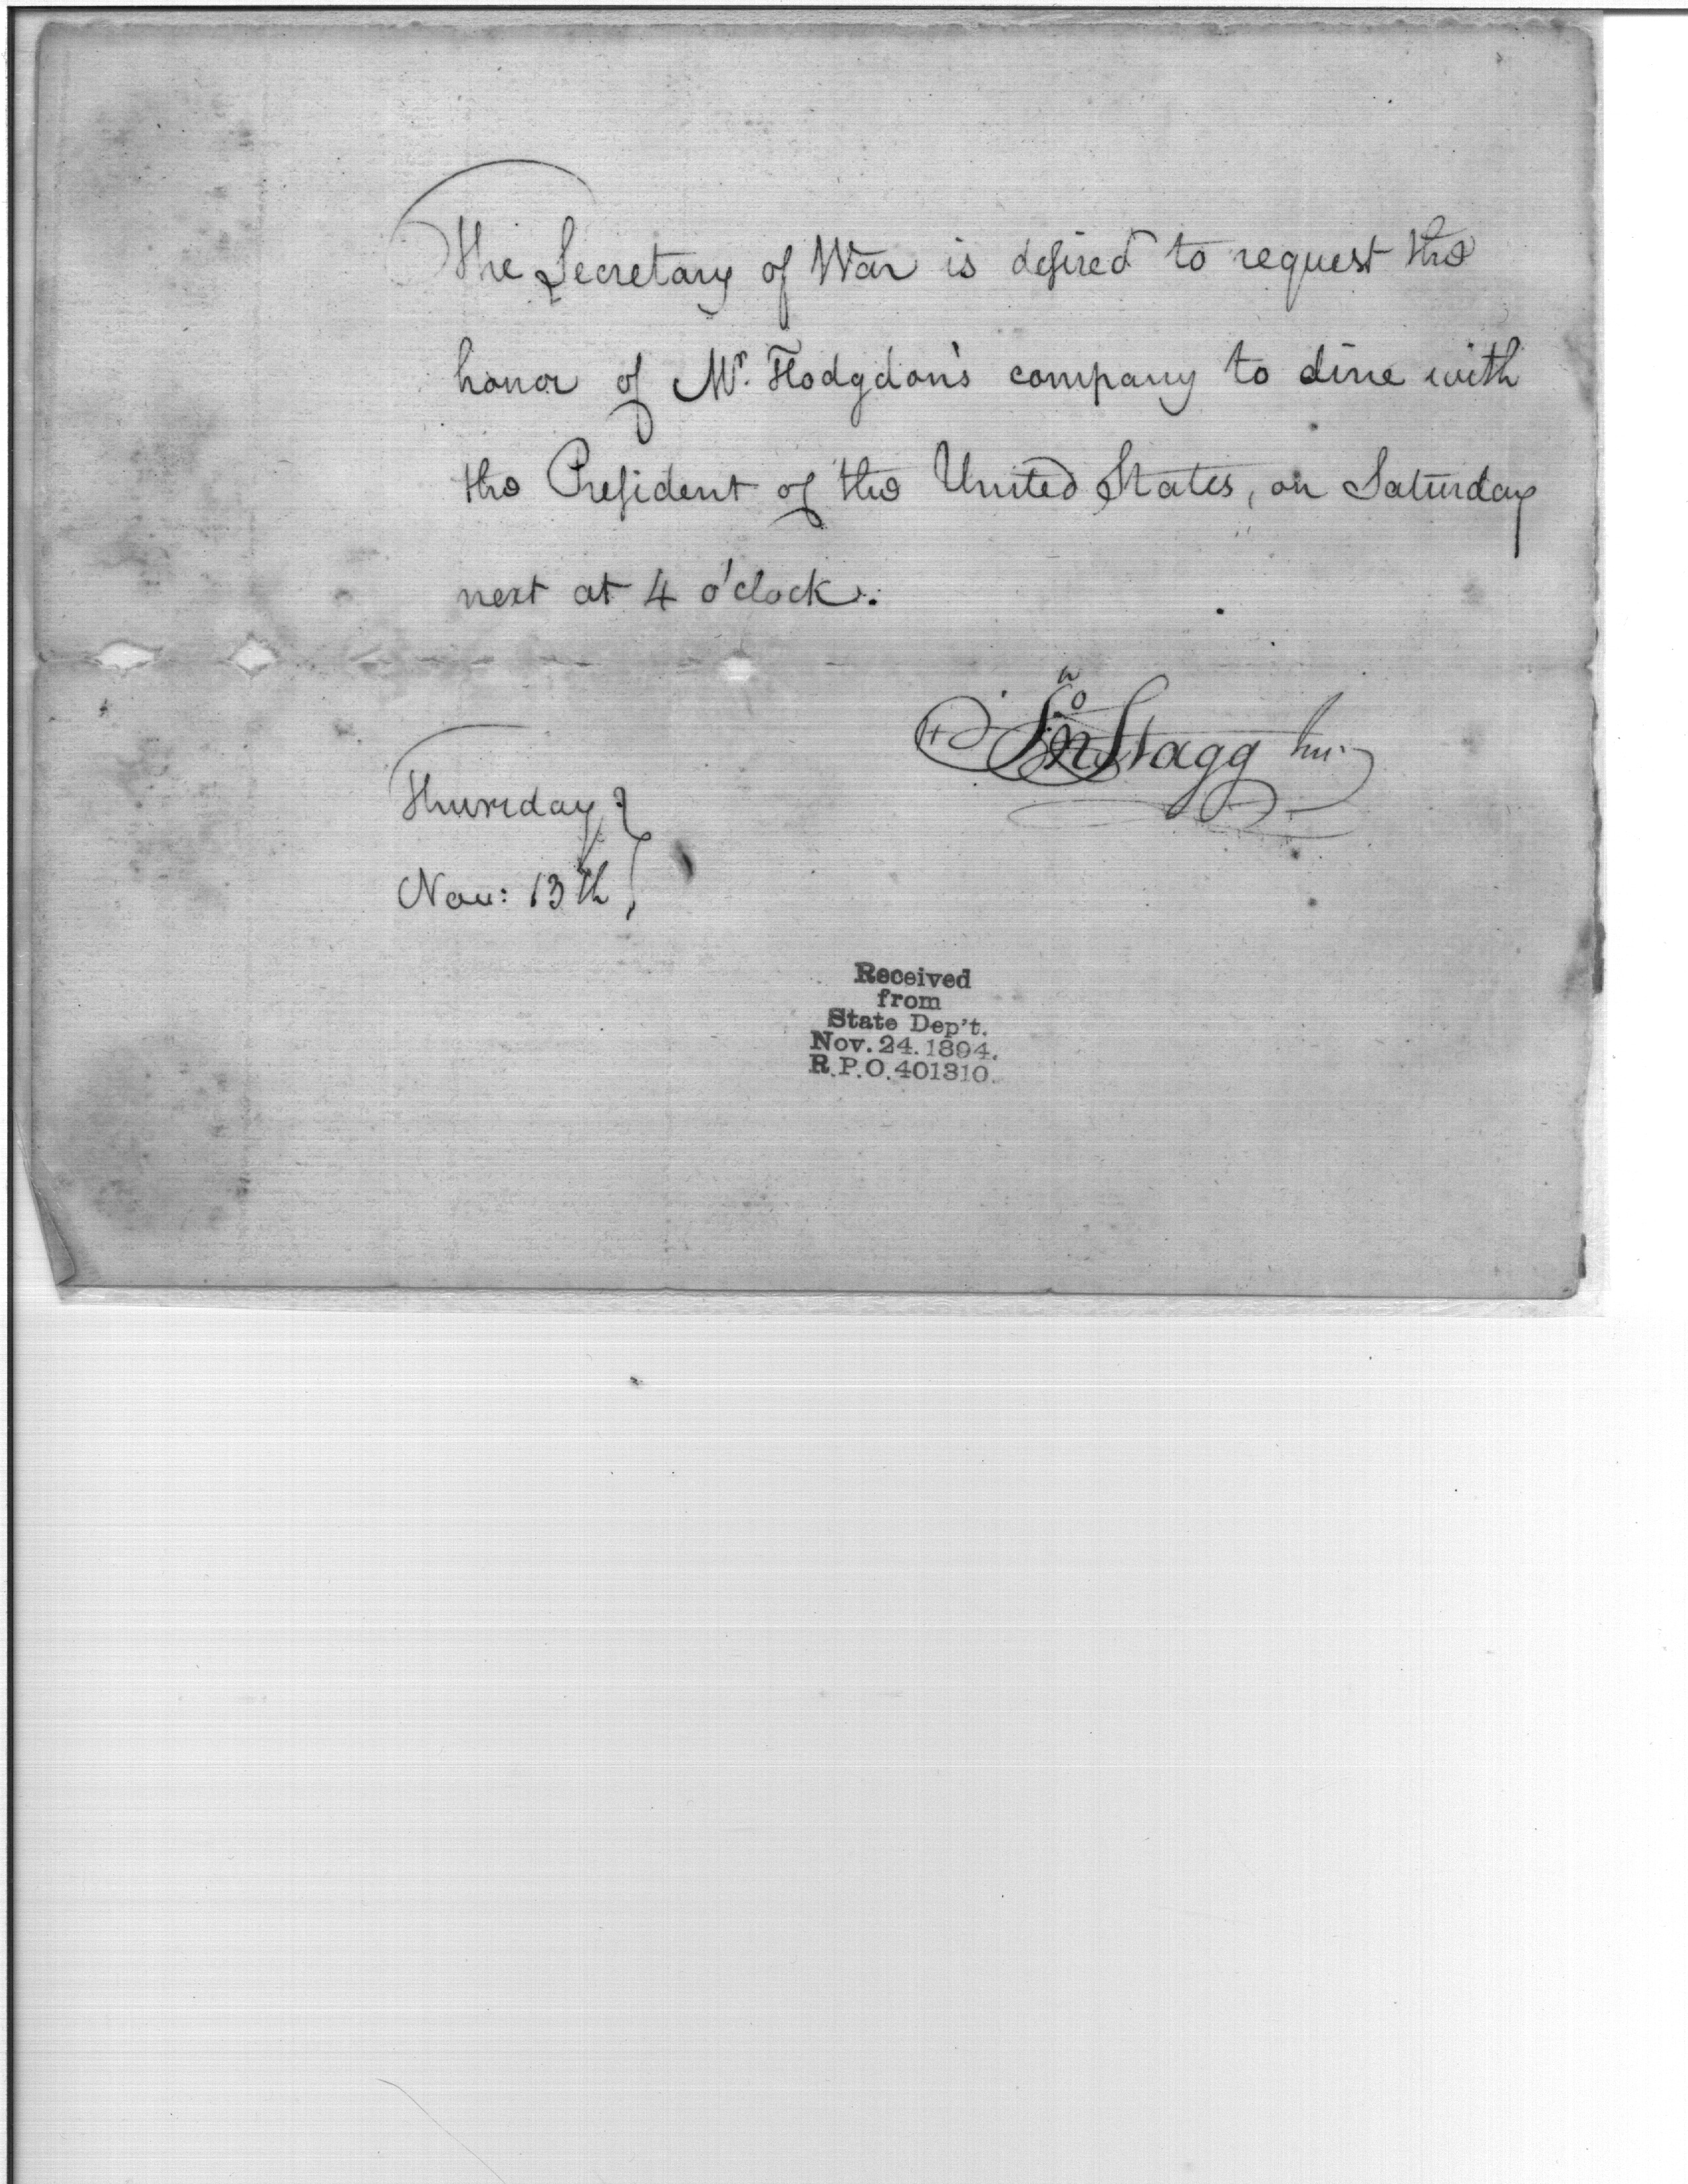 The Secretary of War is desired to request the
honor of Mr. Hodgdon's company to dine with
the President of the United States, on Saturday
next at 4 o'clock.
Jno Stagg Junr.
Thursday
Nov: 13th
Received
from
State Dep't.
Nov. 24. 1894.
R.P.O. 401310.